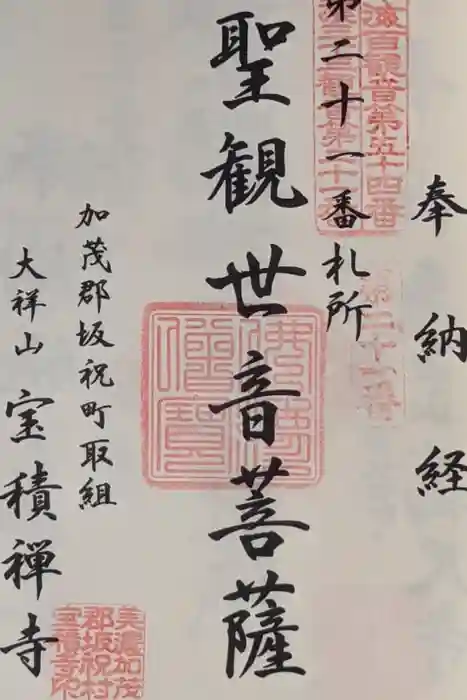 奉納経
第二十一番札所
聖観世音菩薩
加茂郡坂祝町取組
大祥山 宝積禅寺
百観音第五十四番
第二十一番
佛法僧寳
美濃加茂
郡坂祝村
宝積寺印